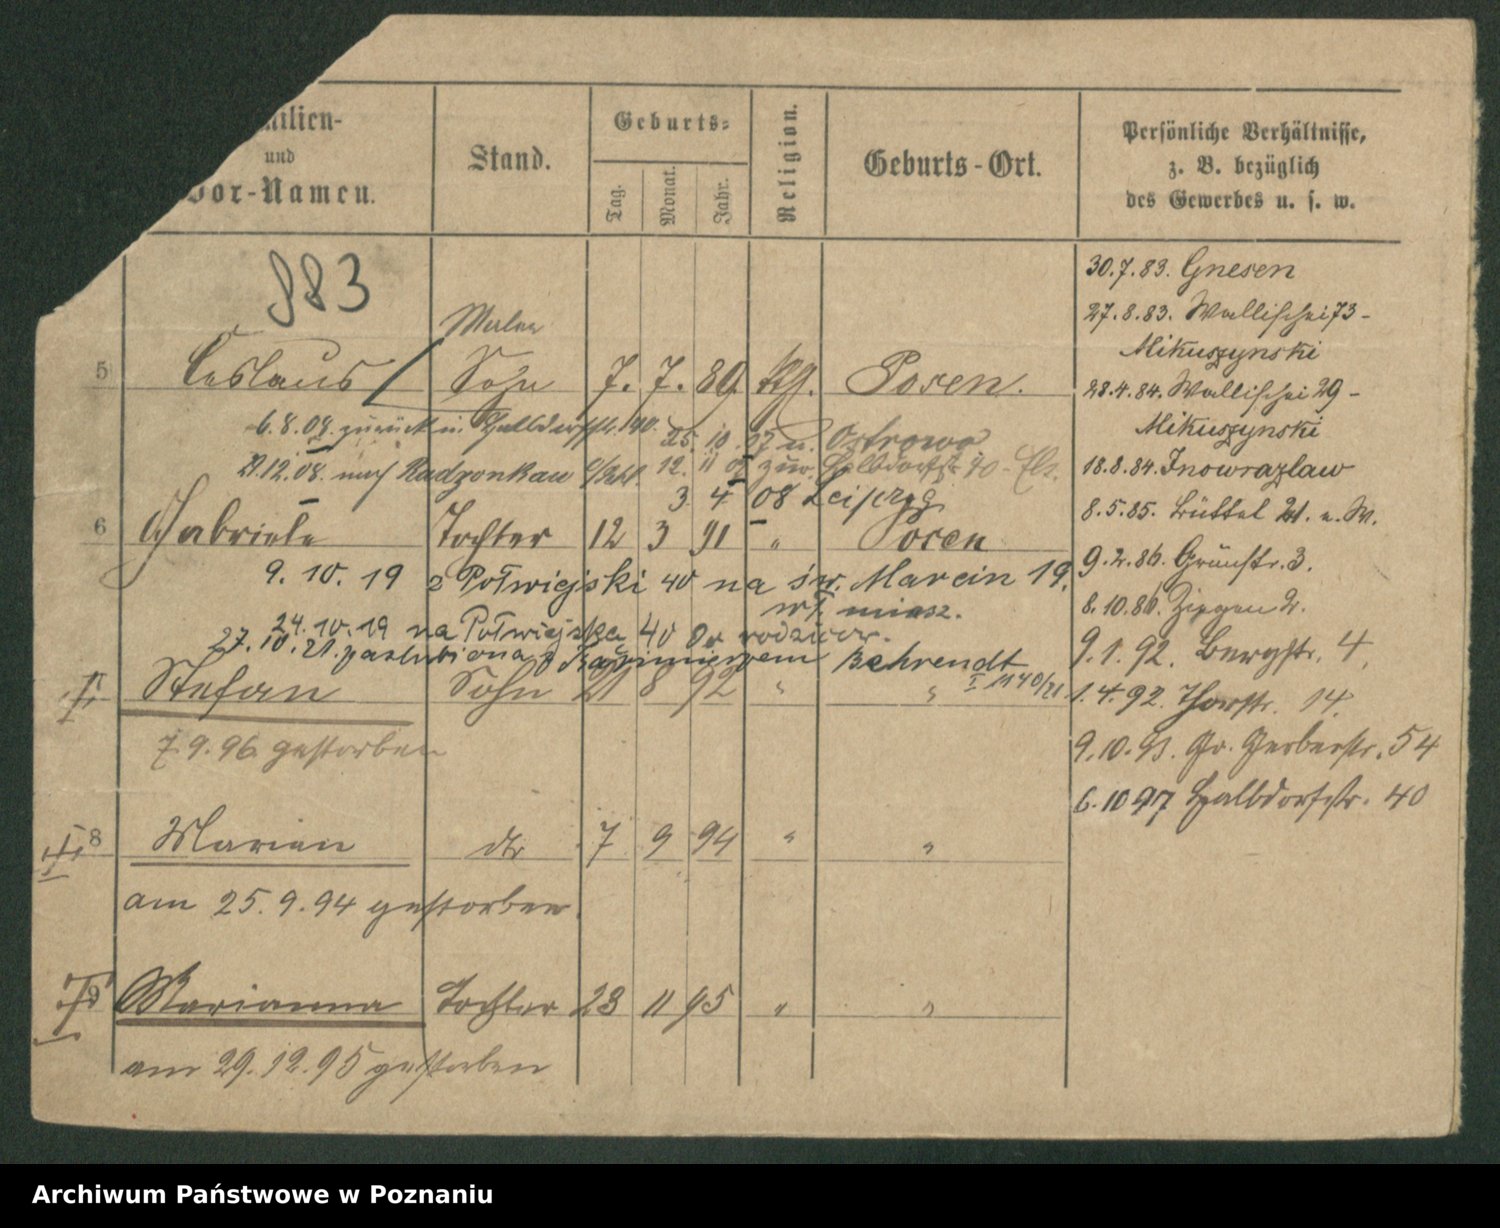 Familien-
und
Vor-Namen.
Stand.
Geburts-
Tag.
Monat.
Jahr.
Religion.
Geburts-Ort.
Persönliche Verhältnisse,
z. B. bezüglich
des Gewerbes u. s. w.
983
Maler
5 Ceslaus Sohn 7. 7. 89 kth. Posen.
6.8.08. zurück in Halbdorfstr. 40.
25. 10. 07 n. Ostrowo
21.12.08. nach Radzonkau
12. 11 07 zur. Halbdorfstr 40 - Elt.
3. 4 08 Leipzig
6 Gabriele Tochter 12 3 91 " Posen
9. 10. 19 z Półwiejski 40 na św. Marcin 19.
wł. miesz.
24.10.19 na Półwiejską 40 do rodziców.
27.10.21. zaslubiona z Kazimierzem Behrendt
I 1140/21
7 Stefan Sohn 21 8 92 " "
7.9.96. gestorben
8 Marian dto 7 9 94 " "
am 25.9.94 gestorben.
9 Marianna Tochter 23 11 95 " "
am 29.12.95 gestorben
30.7.83. Gnesen
27.8.83. Wallischei 73 -
Mikuszynski
28.4.84. Wallischei 29 -
Mikuszynski
18.8.84. Inowrazlaw
8.5.85. Büttel 21. a. W.
9.2.86. Grünstr. 3.
8.10.86. Ziegen 2.
9.1.92. Bergstr. 4.
1.4.92. Thorstr. 14.
9.10.93. Gr. Gerberstr. 54
6.10 97 Halbdorfstr. 40
Archiwum Państwowe w Poznaniu